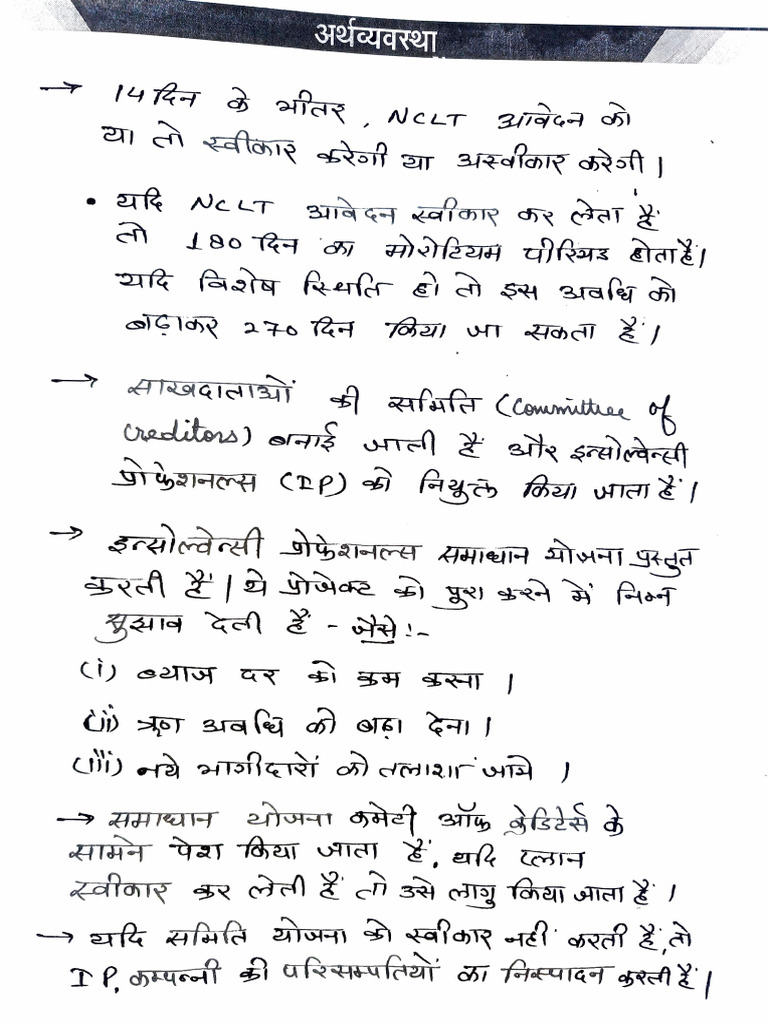 अर्थव्यवस्था
→ 14 दिन के भीतर, NCLT आवेदन को
या तो स्वीकार करेगी या अस्वीकार करेगी।
• यदि NCLT आवेदन स्वीकार कर लेता है
तो 180 दिन का मोरोटियम पीरियड होता है।
यदि विशेष स्थिति हो तो इस अवधि को
बढ़ाकर 270 दिन किया जा सकता है।
→ साखदाताओं की समिति (Committee of
Creditors) बनाई जाती है और इन्सोल्वेन्सी
प्रोफेशनल्स (IP) को नियुक्त किया जाता है।
→ इन्सोल्वेन्सी प्रोफेशनल्स समाधान योजना प्रस्तुत
करती है। ये प्रोजेक्ट को पूरा करने में निम्न
सुझाव देती है - जैसे:-
(i) ब्याज दर को कम करना।
(ii) ऋण अवधि को बढ़ा देना।
(iii) नये भागीदारों को तलाशा जाये।
→ समाधान योजना कमेटी ऑफ क्रेडिटर्स के
सामने पेश किया जाता है, यदि प्लान
स्वीकार कर लेती है तो उसे लागु किया जाता है।
→ यदि समिति योजना को स्वीकार नहीं करती है, तो
IP, कम्पन्नी की परिसम्पतियों का निस्पादन करती है।